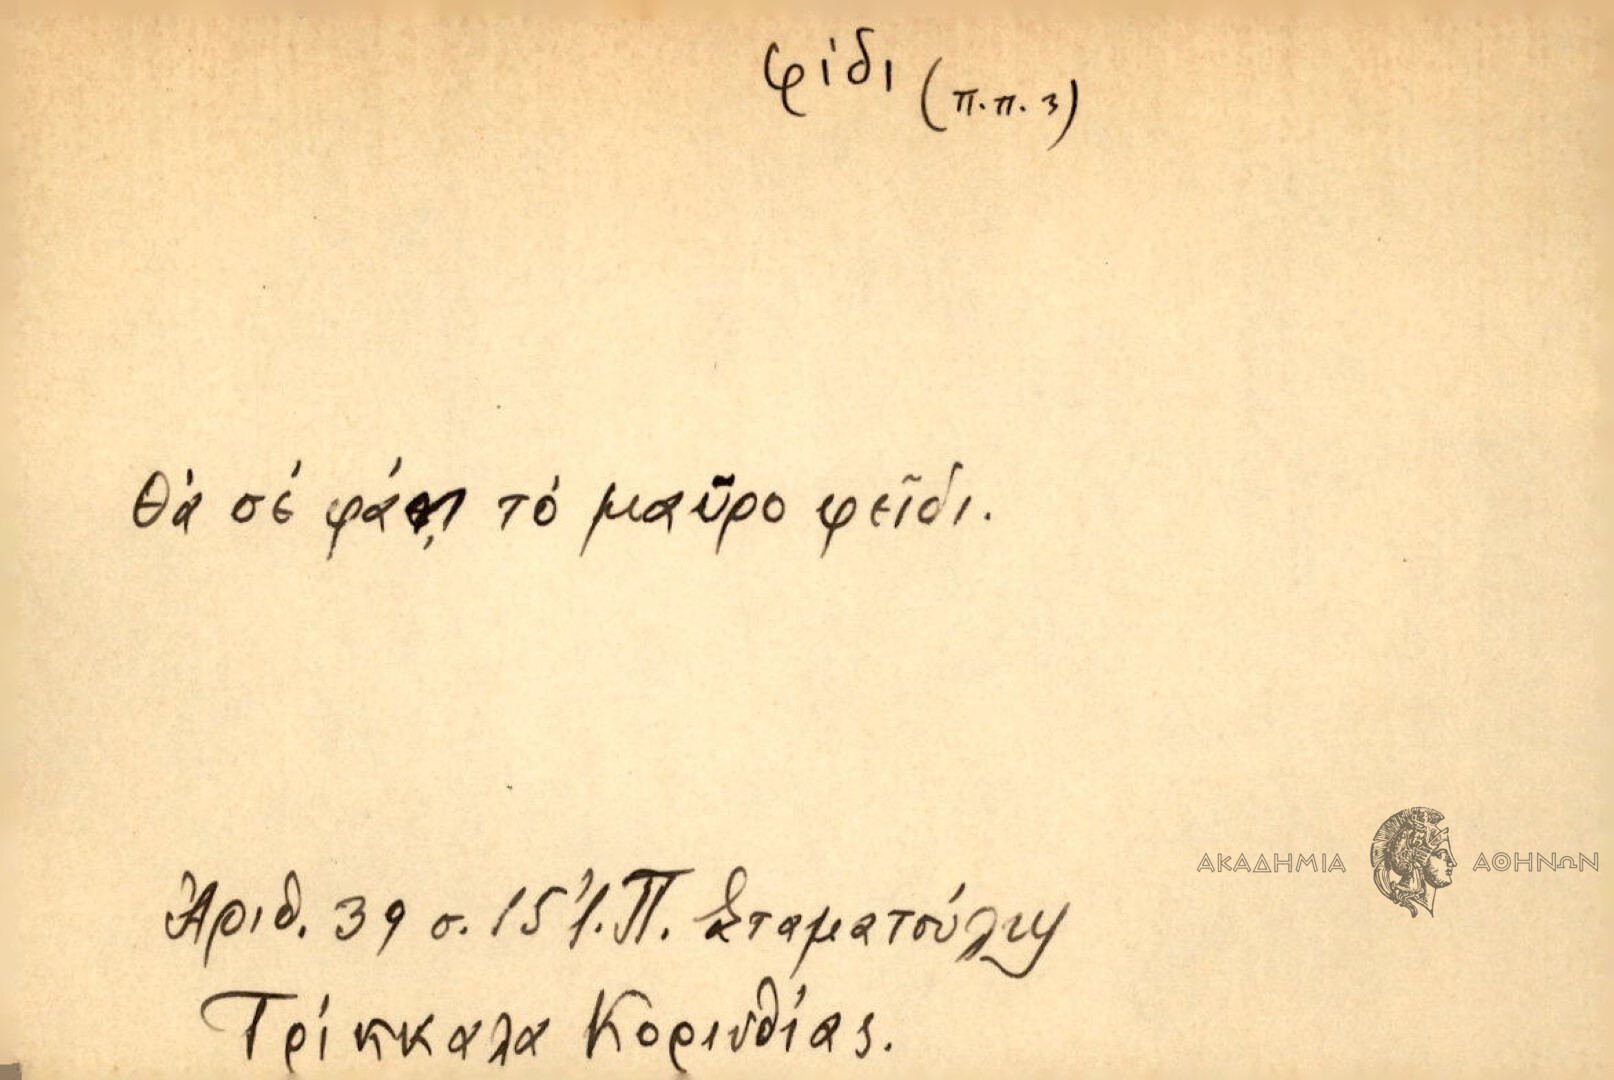 φίδι (π.π. 3)
Θά σέ φάῃ τό μαῦρο φεῖδι.
ΑΚΑΔΗΜΙΑ ΑΘΗΝΩΝ
Ἀριθ. 39 σ. 15 Ἰ. Π. Σταματούλη
Τρίκκαλα Κορινθίας.